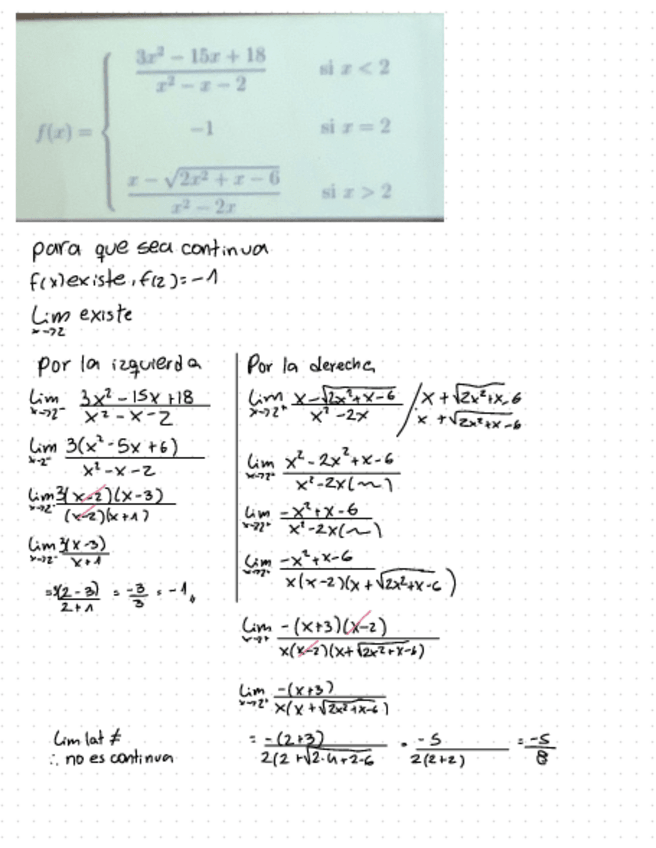 f(x) = { (3x² − 15x + 18)/(x² − x − 2)   si x < 2
−1   si x = 2
(x − √(2x² + x − 6))/(x² − 2x)   si x > 2
para que sea continua
f(x) existe, f(2) = −1
Lim x→2 existe
Por la izquierda
Lim x→2⁻ (3x² − 15x + 18)/(x² − x − 2)
Lim x→2⁻ 3(x² − 5x + 6)/(x² − x − 2)
Lim x→2⁻ 3(x−2)(x−3)/((x−2)(x+1))
Lim x→2⁻ 3(x−3)/(x+1)
= 3(2−3)/(2+1) = −3/3 = −1
Por la derecha
Lim x→2⁺ (x − √(2x²+x−6))/(x² − 2x) / (x + √(2x²+x−6))/(x + √(2x²+x−6))
Lim x→2⁺ (x² − 2x² + x − 6)/(x² − 2x(~))
Lim x→2⁺ (−x² + x − 6)/(x² − 2x(~))
Lim x→2⁺ (−x² + x − 6)/(x(x−2)(x + √(2x²+x−6)))
Lim x→2⁺ −(x+3)(x−2)/(x(x−2)(x + √(2x²+x−6)))
Lim x→2⁺ −(x+3)/(x(x + √(2x²+x−6)))
= −(2+3)/(2(2 + √(2·4+2−6) = −5/(2(2+2)) = −5/8
Lim lat ≠
∴ no es continua